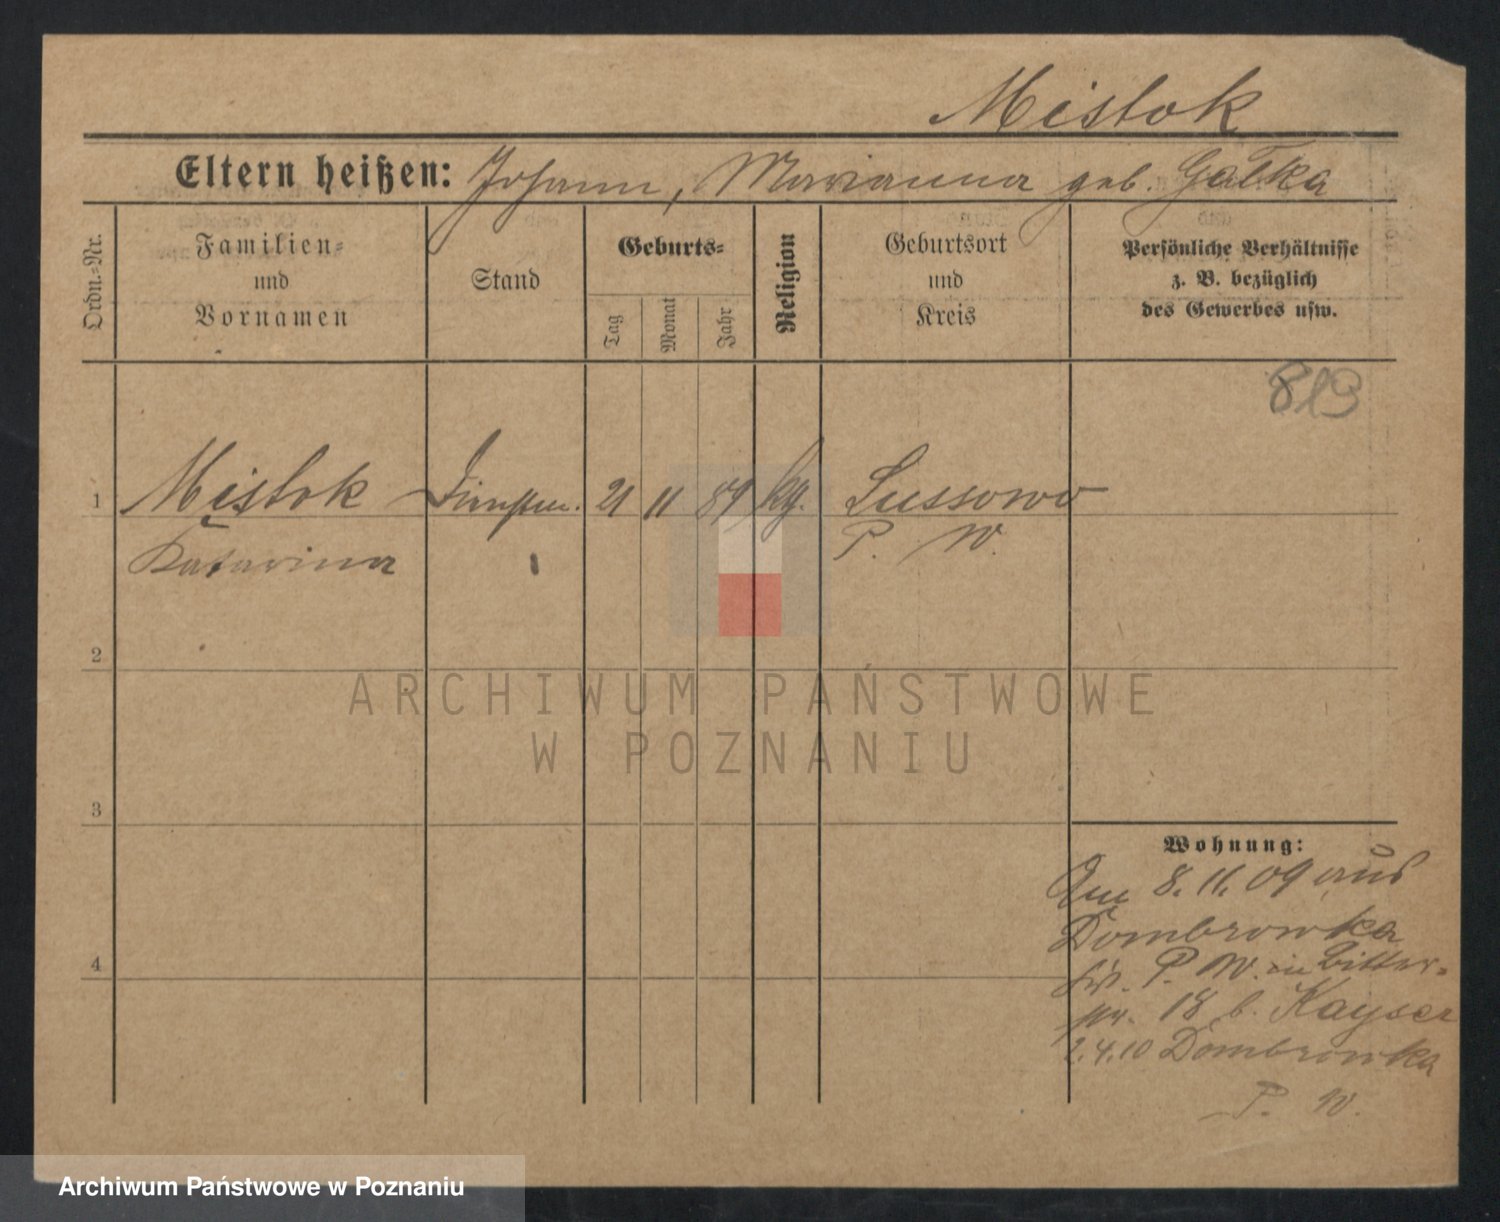 Mistok
Eltern heißen: Johann, Marianna geb. Gałka
Ordn.-Nr.
Familien-
und
Vornamen
Stand
Geburts-
Tag
Monat
Jahr
Religion
Geburtsort
und
Kreis
Persönliche Verhältnisse
z. B. bezüglich
des Gewerbes usw.
819
1 Mistok 21 11 89 kg. Lussowo
Katarina P. W.
2
3
4
Wohnung:
Am 8. 11. 09 aus
Dombrowka
P. W. in Bitter-
18 b. Kayser
2.4.10 Dombrowka
P. W.
ARCHIWUM PAŃSTWOWE
W POZNANIU
Archiwum Państwowe w Poznaniu